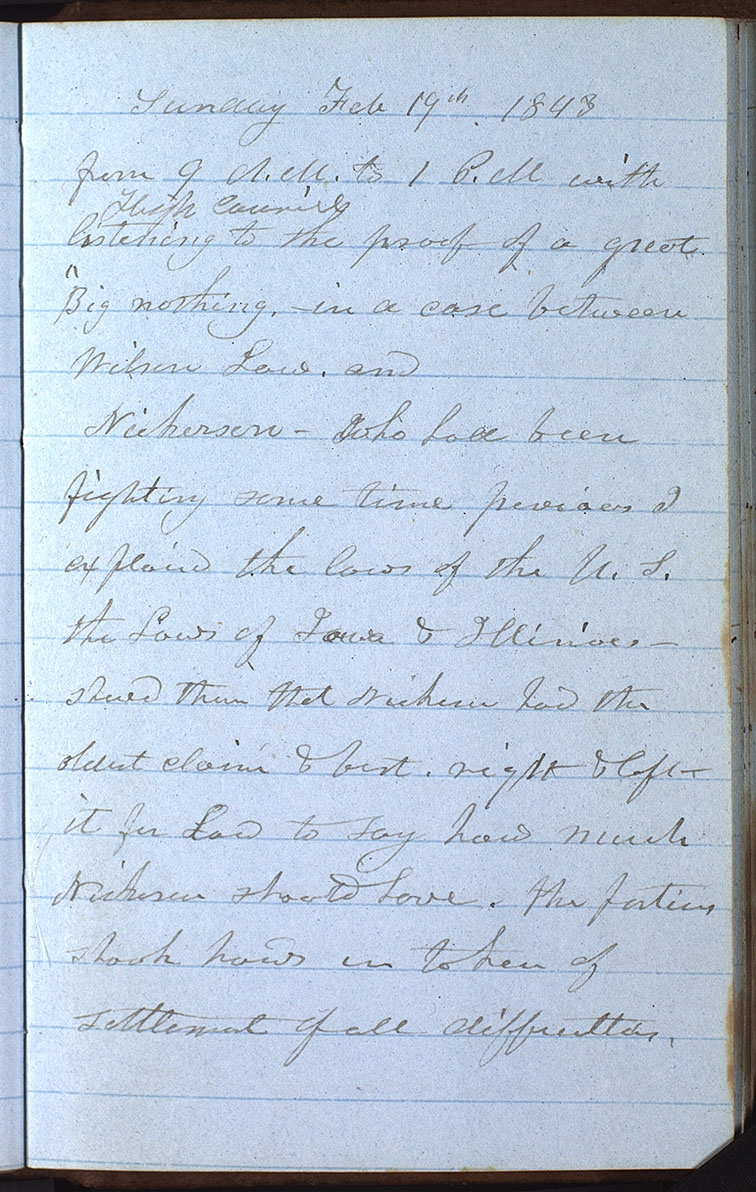 Sunday Feb 19th. 1843
from 9 A.M. to 1 P.M with
High Council
listening to the proof of a great
"Big nothing. - in a case between
Wilson Law. and
Nickerson - who had been
fighting some time previous I
explaind the laws of the U. S.
the Laws of Iowa & Illinois -
shewd them that Nickerson had the
oldest claim & best. right & left
it for Law to say how much
Nickerson should have. the parties
shook hands in token of
settlement of all difficulties.